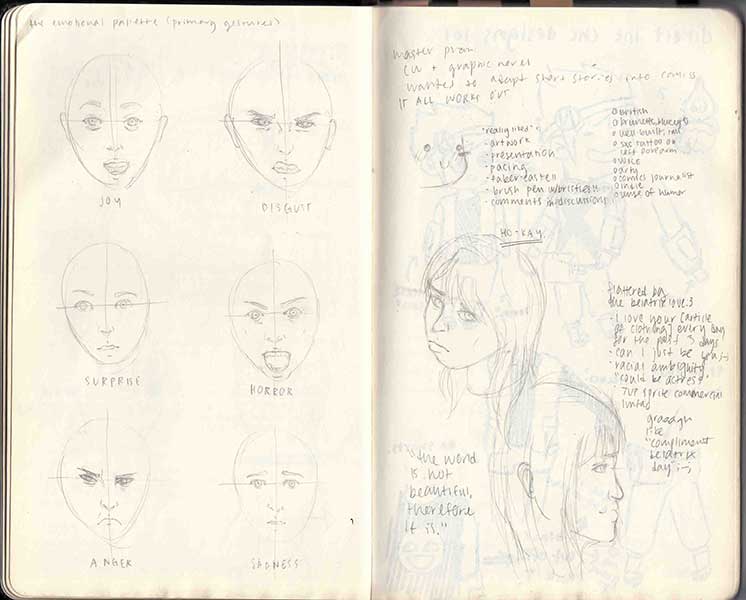 the emotional palette (primary gestures)
JOY
DISGUST
SURPRISE
HORROR
ANGER
SADNESS
master plan
CW + graphic novel
wanted to adapt short stories into comics
IT ALL WORKS OUT
"really liked":
- artwork
- presentation
- pacing
- faber-castell
- brush pen
- comments in discussion
o british
o brunette, blue eyes
o well-built, tall
o tattoo on
left forearm
o voice
o arty
o comics journalist
o indie
o sense of humor
HO-KAY.
flattered by
the beiatrix love :3
- I love your [article
of clothing] every day
for the past 3 days
- can I just be you ;-;
- racial ambiguity
"could be actress"
7up sprite commercial
graaagh
like
"compliment
beiatrix
day ;-;
"the world
is not
beautiful,
therefore
it is."